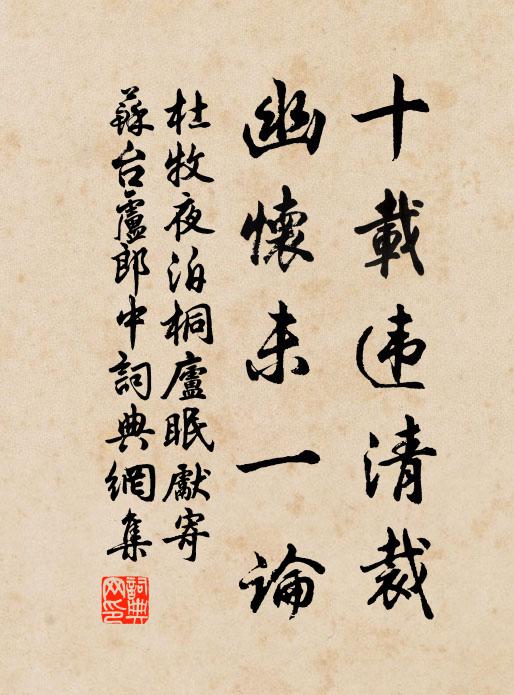 十載违清裁
幽懷未一論
杜牧夜泊桐廬眠獻寄
蘇台盧郎中詞典網集
詞典
网印